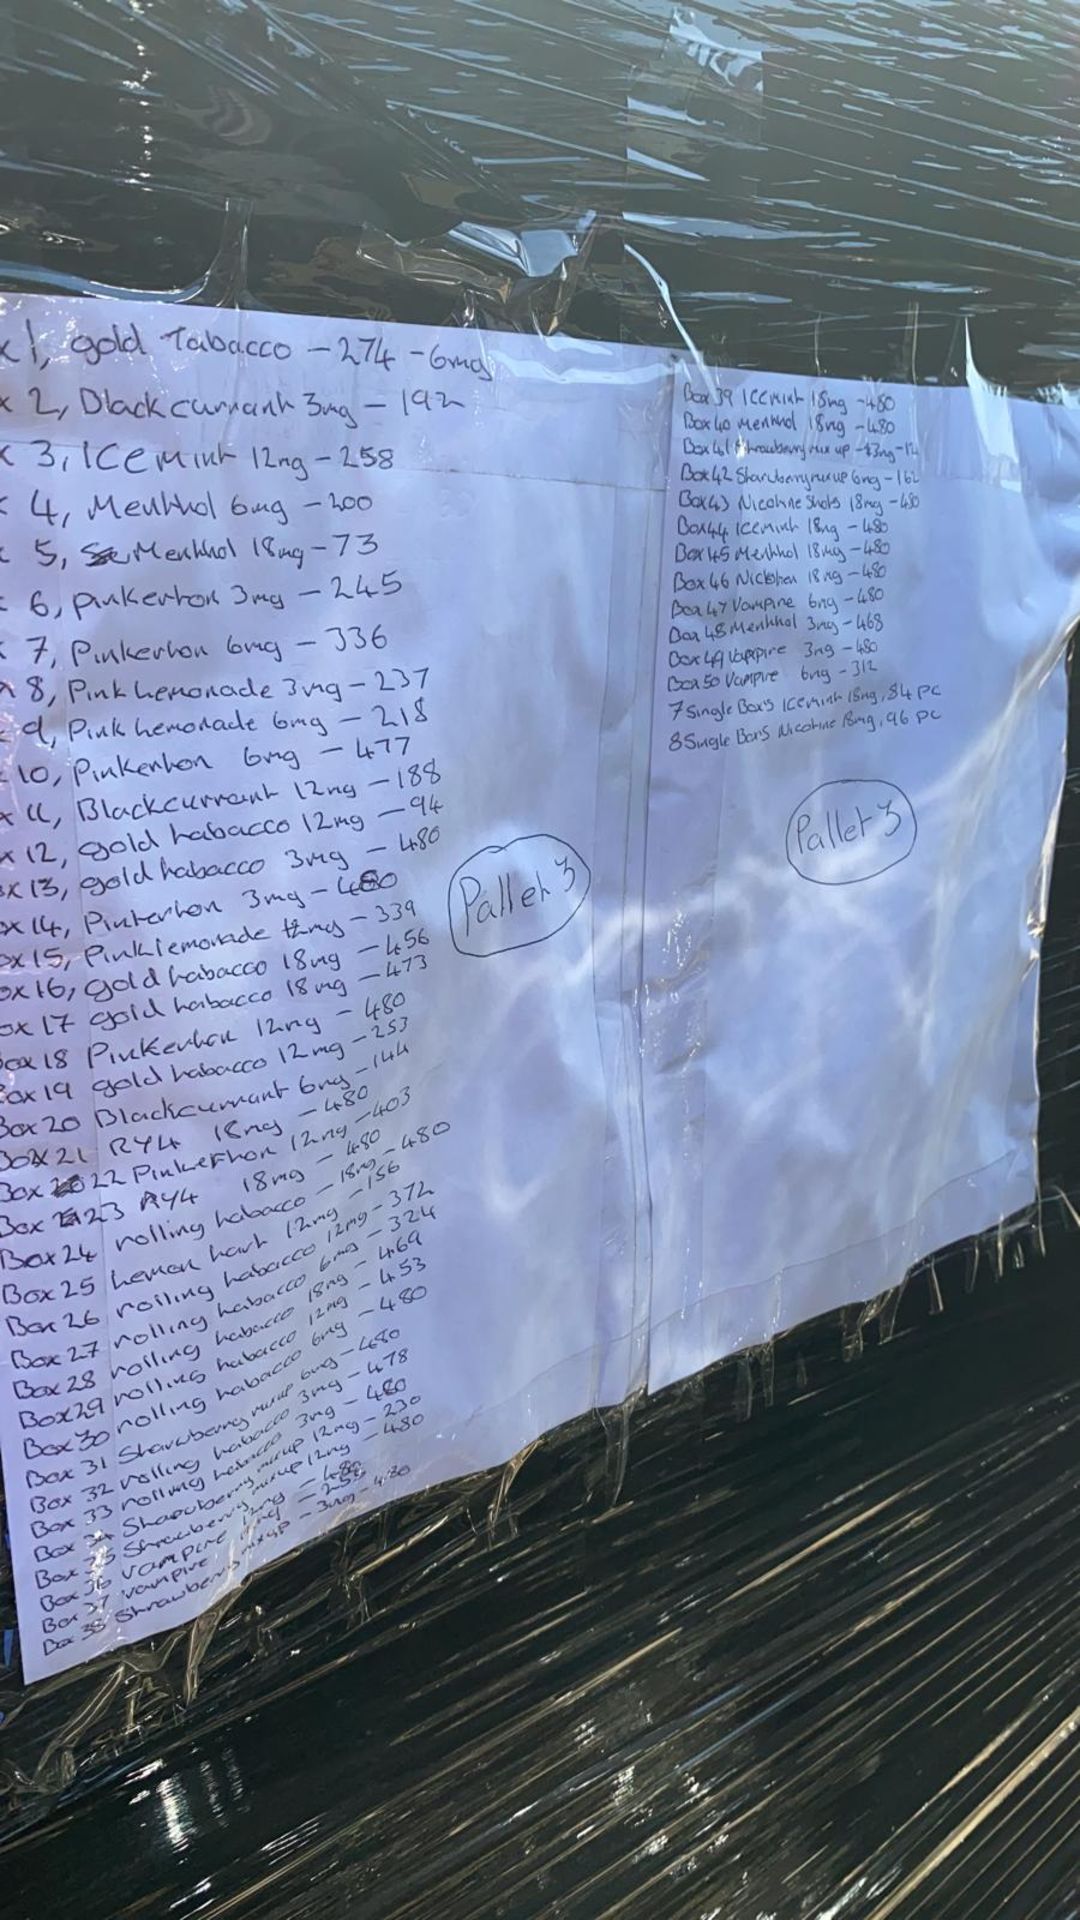 x 1, gold Tabacco - 274 - 6mg
x 2, Blackcurrant 3mg - 192
x 3, Icemint 12mg - 258
x 4, Menthol 6mg - 200
x 5, Menthol 18mg - 73
x 6, pinkerton 3mg - 245
x 7, Pinkerton 6mg - 336
x 8, Pink Lemonade 3mg - 237
x 9, Pink Lemonade 6mg - 218
x 10, Pinkerton 6mg - 477
x 11, Blackcurrant 12mg - 188
x 12, gold tabacco 12mg - 94
ox 13, gold tabacco 3mg - 480
ox 14, Pinkerton 3mg - 480
ox 15, Pinklemonade 12mg - 339
ox 16, gold tabacco 18mg - 456
ox 17 gold tabacco 18mg - 473
Box 18 Pinkerton 12mg - 480
Box 19 gold tabacco 12mg - 253
Box 20 Blackcurrant 6mg - 144
Box 21 RY4 18mg - 480
Box 22 Pinkerton 12mg - 403
Box 23 RY4 18mg - 480
Box 24 rolling tabacco - 18mg - 480
Box 25 Lemon tart 12mg - 156
Box 26 rolling tabacco 12mg - 372
Box 27 rolling tabacco 6mg - 324
Box 28 rolling tabacco 18mg - 469
Box 29 rolling tabacco 12mg - 453
Box 30 rolling tabacco 6mg - 480
Box 31 Strawberry mixup 6mg - 480
Box 32 rolling tabacco 3mg - 478
Box 33 rolling tabacco 3mg - 480
Box 34 Strawberry mixup 12mg - 230
Box 35 Strawberry mixup 12mg - 480
Box 36 Vampire 12mg - 480
Box 37 Vampire
Box 38 Strawberry mixup - 3mg - 480
Pallet 3
Box 39 Icemint 18mg - 480
Box 40 Menthol 18mg - 480
Box 41 Strawberry mix up - 3mg - 12
Box 42 Starwberry mixup 6mg - 162
Box 43 Nicotine Shots 18mg - 480
Box 44 Icemint 18mg - 480
Box 45 Menthol 18mg - 480
Box 46 18mg - 480
Box 47 Vampire 6mg - 480
Box 48 Menthol 3mg - 468
Box 49 Vampire 3mg - 480
Box 50 Vampire 6mg - 312
7 Single Box's Icemint 18mg, 84 PC
8 Single Box's Nicotine 18mg, 96 PC
Pallet 3